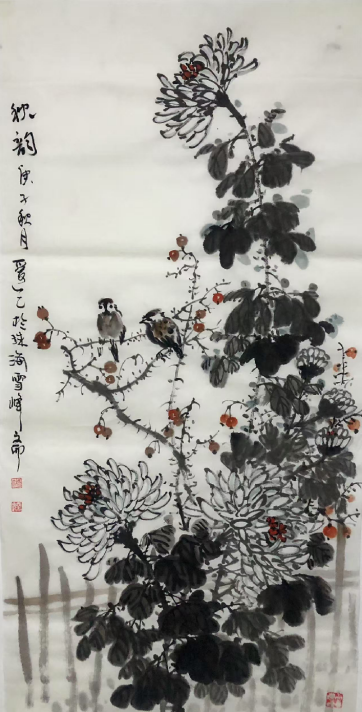 秋韵
庚子秋月爱之於珠海雪峰斋